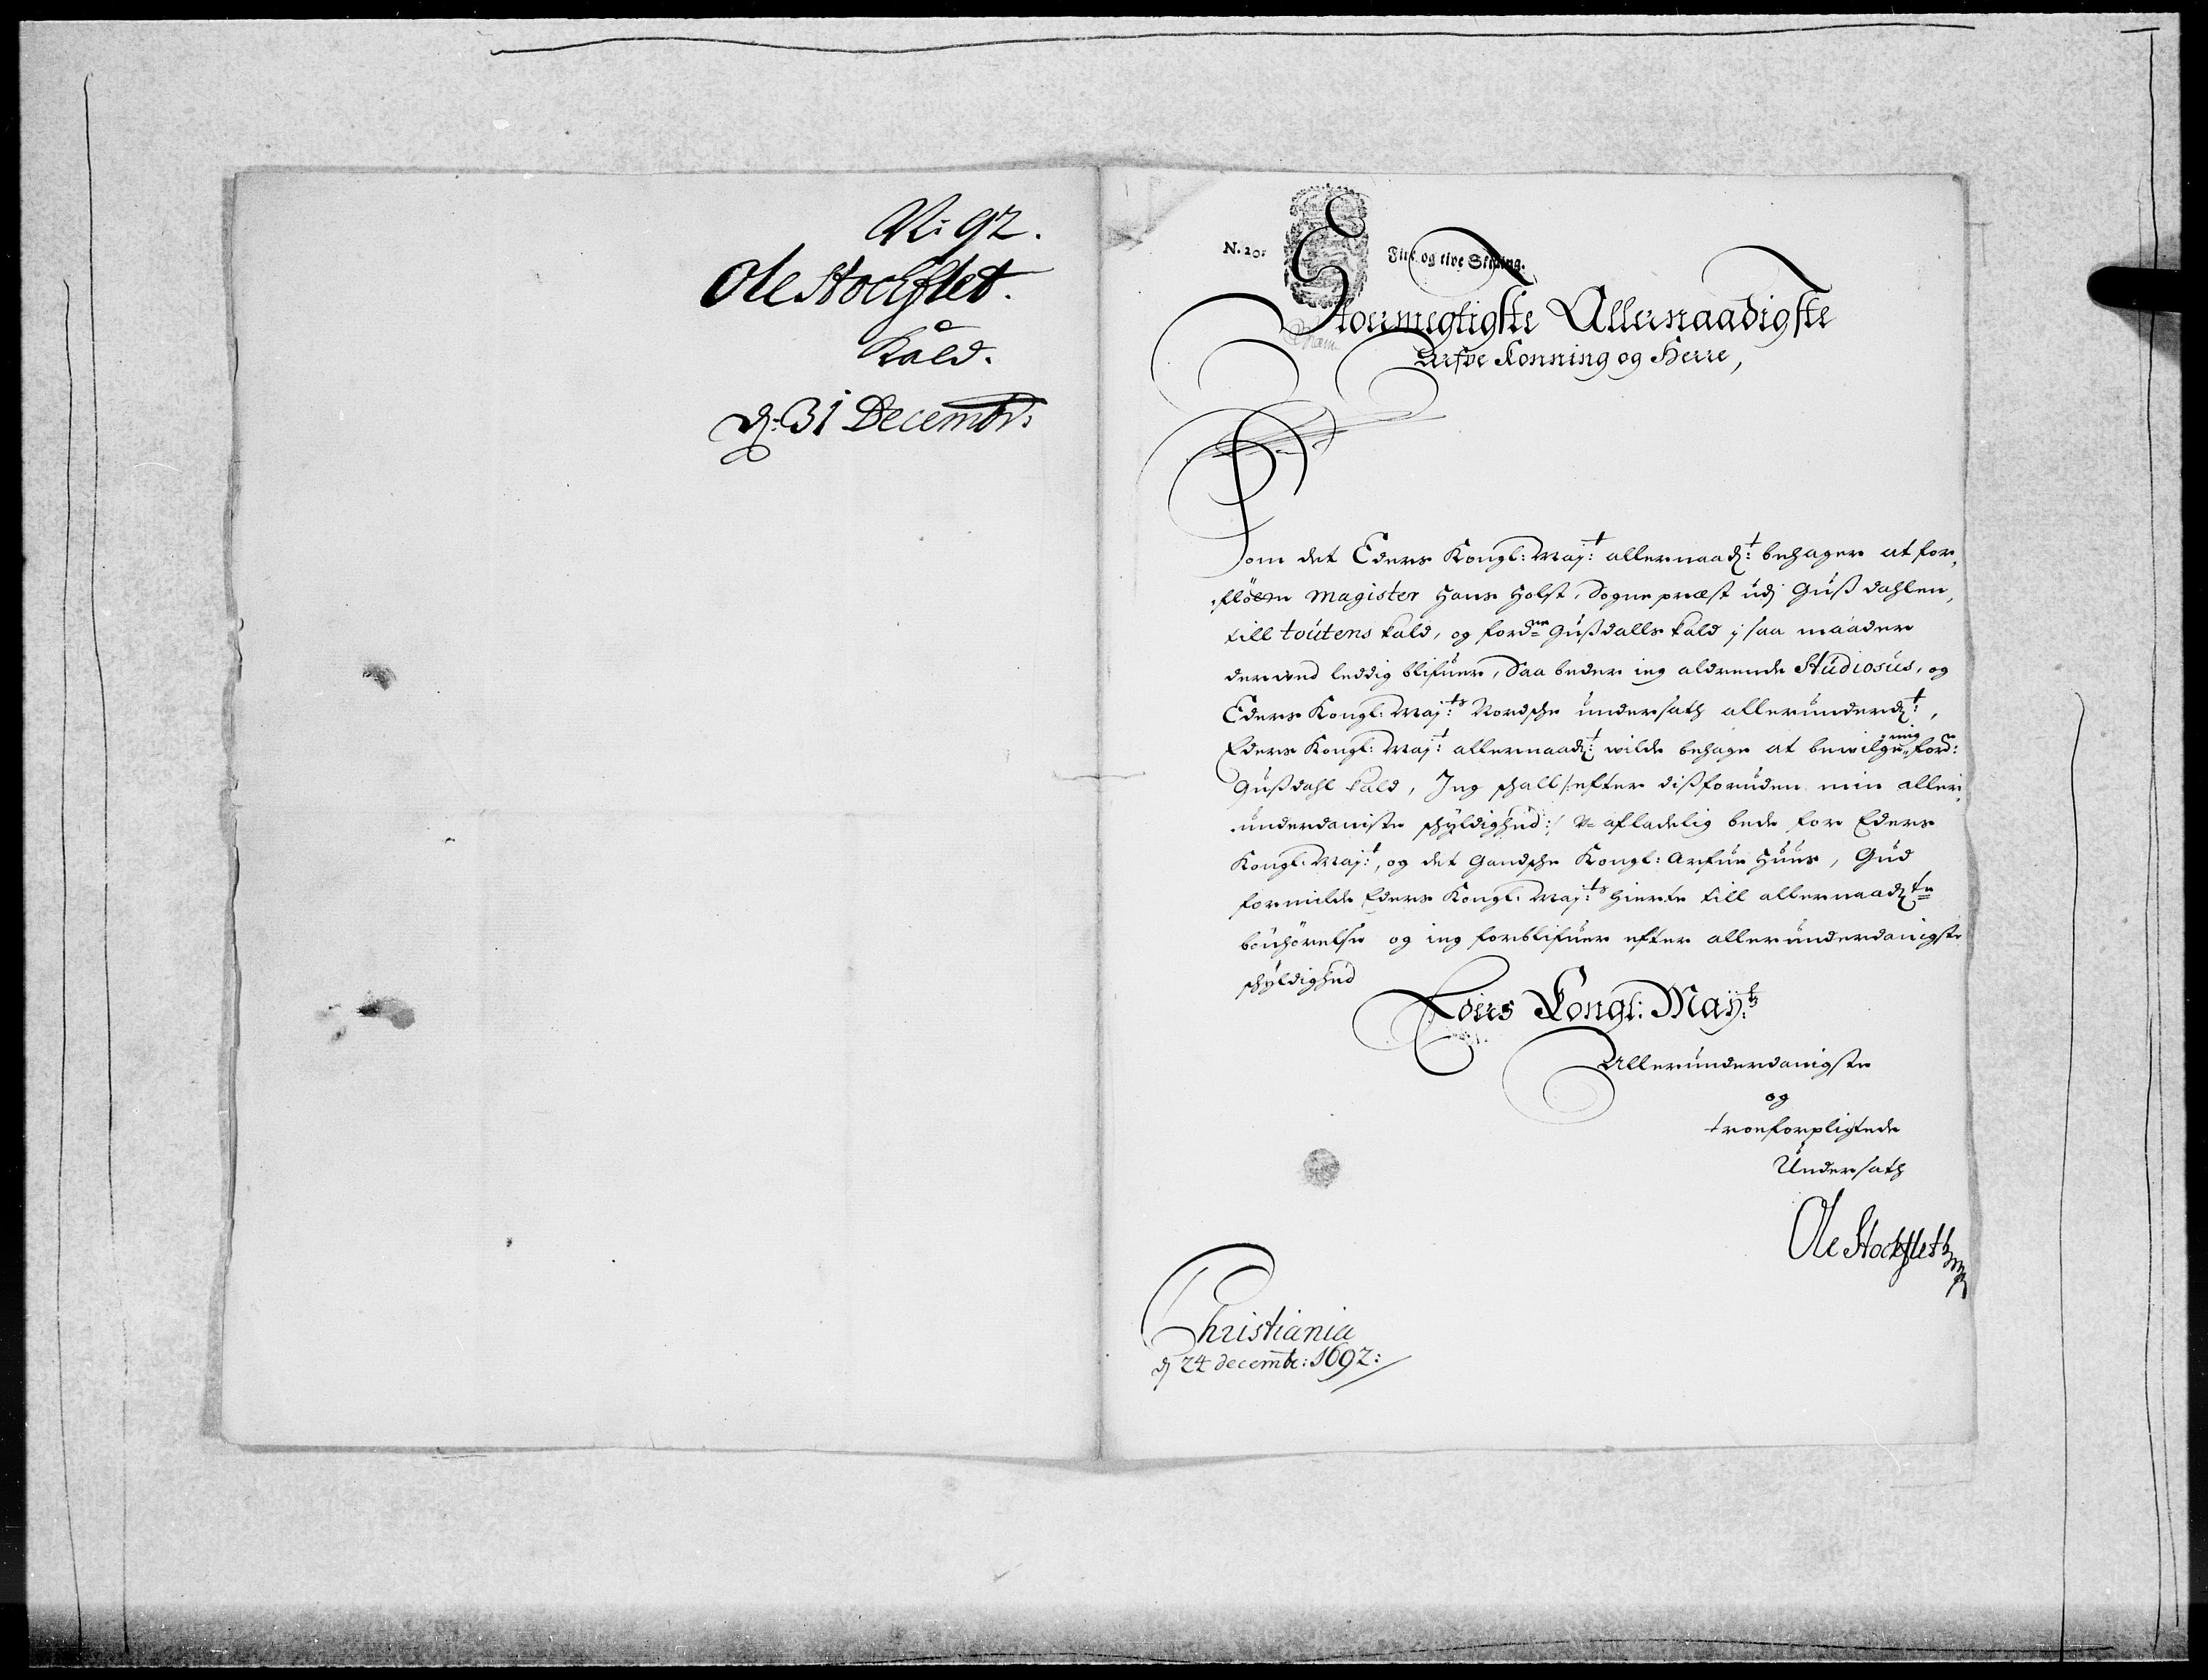 N: 92.
Ole Stockflet.
Kald.
d: 31 Decembr:
N. 20.
Fire og tive Skilling.
Stormegtigste Allernaadigste
Arfve Konning og Herre,
Som det Eders Kongl: Maj:t allernaad:t behager at for,
,flöen Magister Hans Holst, Sogne præst udj Gußdahlen,
till toutens kald, og fordne Gußdalls kald j saa maader
der wed leddig blifuer, Saa beder ieg aldrende Studiosus, og
Eders Kongl: Maj:ts Nordsche undersath allerunderd:t,
Eders Kongl: Maj:t allernaad:t wilde behage at bewilge mig ford:e
Gußdahl kald, Jeg schall /:efter dißforuden min aller,
,underdaniste schyldighed:/ u-afladelig bede for Eders
Kongl: Maj:t, og det Gandsche Kongl: Arfue Huus, Gud
formilde Eders Kongl: Maj:ts Hierte till allernaadte
bönhörelse og ieg forblifuer efter allerunderdanigste
schyldighed
Eders Kongl: May:ts
Allerunderdanigste
og
troeforpligtede
Undersath
Ole Stockfleth
Christiania
d 24 decembr: 1692: